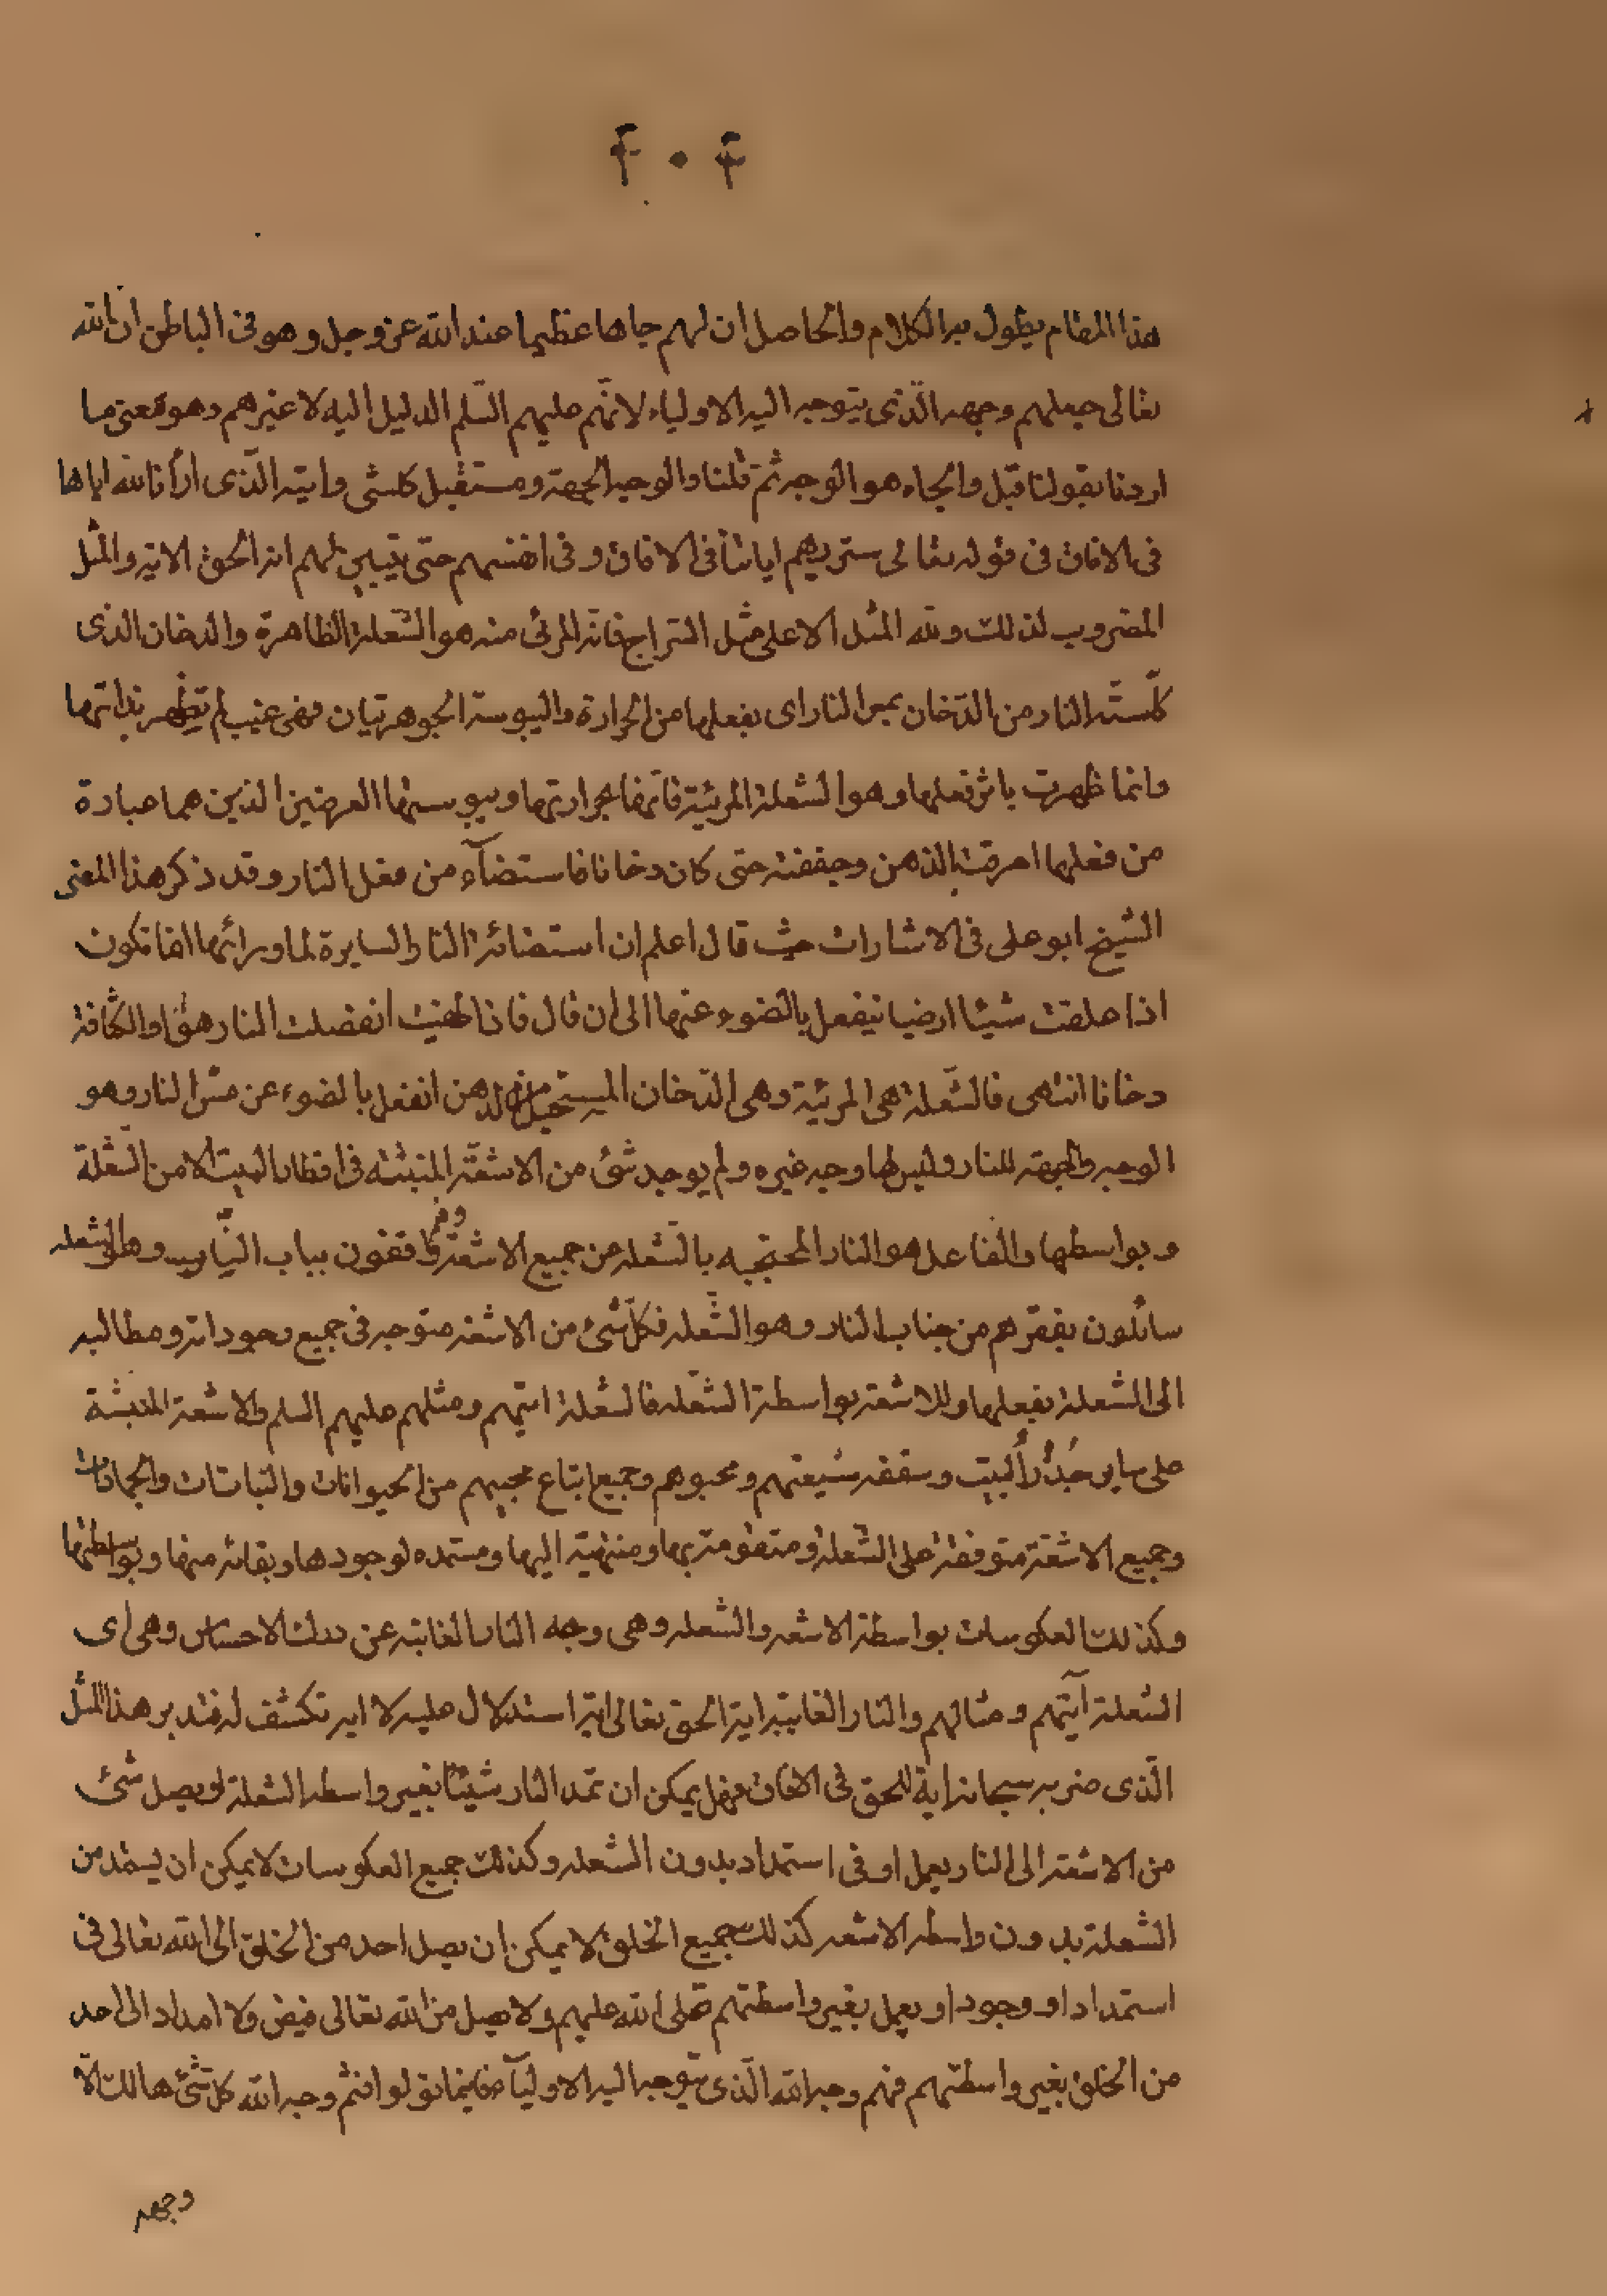 ۴۰۴
هذا المقام يطول به الكلام والحاصل ان لهم جاها عظيما عند الله عز وجل وهو في الباطن ان الله
تعالى جعلهم وجهه الّذى يتوجه اليه الاولياء لانّهم عليهم السّلم الدليل اليه لا غيرهم وهو معنى ما
اردنا بقولنا قبل والجاه هو الوجه ثم قلنا والوجه الجهة ومستقبل كلشى وايته الّذى ارانا الله اياها
فى الافاق فى قوله تعالى سنريهم اياتنا فى الافاق وفى انفسهم حتى يتبين لهم انه الحق الاية والمثل
المضروب لذلك ولله المثل الاعلى مثل السّراج فانّ المرئى منه هو الشّعلة الظاهرة والدخان الذى
كلّسته النار من الدّخان بمس النار اى بفعلها من الحرارة واليبوسة الجوهريتان فهى غيب لم تظهر بذاتها
وانما ظهرت باثر فعلها وهو الشعلة المرئية فانّها بحرارتها ويبوستها العرضين الذين هما عبارة
من فعلها احرقت الدهن وجففته حتى كان دخانا فاستضآء من فعل النار وقد ذكر هذا المعنى
الشيخ ابو على فى الاشارات حيث قال اعلم ان استضائة النار السايرة لما ورائها انما تكون
اذا علقت شيئا ارضيا ينفعل بالضوء عنها الى ان قال فاذا طفيت انفصلت النار هوٓاء والكثافة
دخانا انتهى فالشّعلة هى المرئية وهى الدّخان المستحيل من الدهن انفعل بالضوء عن مسّ النار وهو
الوجه والجهة للنار وليس لها وجه غيره ولم يوجد شئ من الاشعّة المنبثة فى اقطار البيت الا من الشّعلة
وبواسطها والفاعل هو النار المحتجبه بالشعله من جميع الاشعّة واقفون بباب النّار وهو الشعله
سائلون بفقرهم من جناب النار وهو الشّعله فكلّ شئ من الاشعه متوجه فى جميع وجوداته ومطالبه
الى الشعلة بفعلها وللاشعّة بواسطة الشّعله فالشعلة ايتهم ومثلهم عليهم السلم والاشعة المنبثّة
على ساير جُدُرُ البيت وسقفه شيعتهم ومحبوهم وجميع اتباع محبيهم من الحيوانات والنباتات والجمادات
وجميع الاشعّة متوقفة على الشّعلة ومتقومة بها ومنتهية اليها ومستمده لوجودها وبقائه منها وبواسطتها
وكذلك العكوسات بواسطة الاشعه والشعله وهى وجه النار الغائبه عن درك الاحساس وهى اى
الشعلة آيتهم ومثالهم والنار الغايبة اية الحق تعالى اية استدلال عليه لا اية تكشف له فتدبر هذا المثل
الّذى ضربه سبحانه اية للحق فى الافاق فهل يمكن ان تمد النار شيئا بغير واسطه الشعلة او يصل شئ
من الاشعّه الى النار بعمل او فى استمداد بدون الشعله وكذلك جميع العكوسات لا يمكن ان يستمد من
الشعلة بدون واسطه الاشعه كذلك جميع الخلق لا يمكن ان يصل احد من الخلق الى الله تعالى فى
استمداد او وجود او بعمل بغير واسطتهم صلى الله عليهم ولا يصل من الله تعالى فيض ولا امداد الى احد
من الخلق بغير واسطتهم فهم وجه الله الّذى يتوجه اليه الاوليآء فاينما تولوا فثم وجه الله كل شئ هالك الّا
وجهه